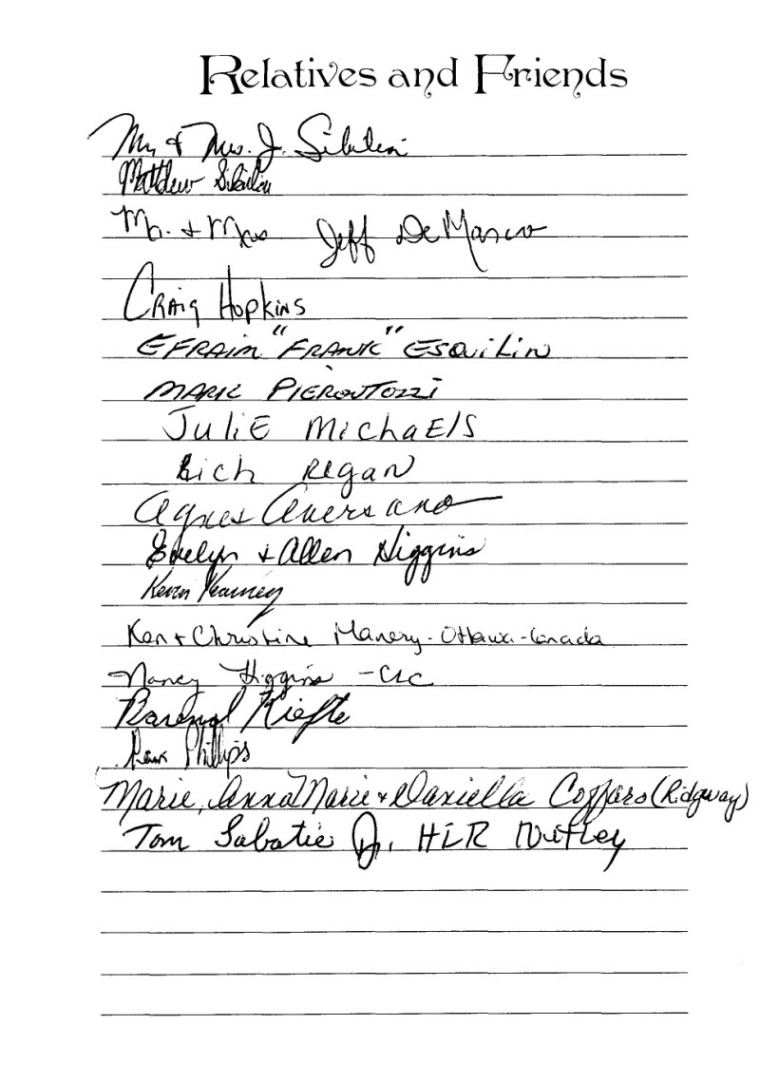 Relatives and Friends
Mr. & Mrs. J.
Matthew
Mr. & Mrs Jeff DeMarco
Craig Hopkins
EFRAIM "FRANK" ESQuiLiN
MARK PIEROUTOZZI
JuliE MichaElS
Rich Regan
Agnes Aversano
Evelyn & Allen Higgins
Kevin Kearney
Ken & Christine Manery - Ottawa - Canada
Nancy Higgins -
Kiefte
Phillips
Marie, AnnaMarie & Daniella Coffaro (Ridgway)
Tom Sabatie Jr, HLR Nutley